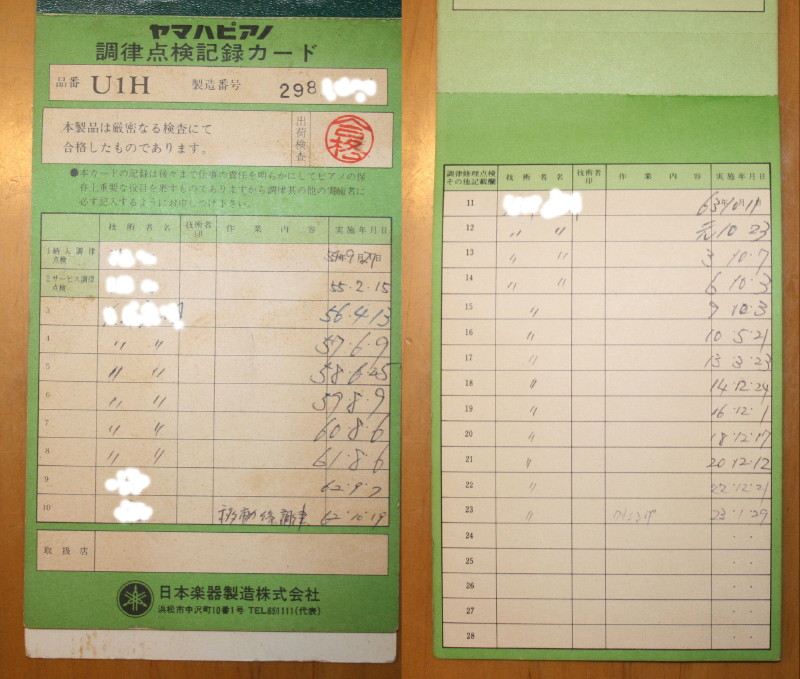 ヤマハピアノ
調律点検記録カード
品番 U1H 製造番号 298
本製品は厳密なる検査にて
合格したものであります。
出荷検査
合格
●本カードの記録は後々まで仕事の責任を明らかにしてピアノの保
存上重要な役目を果すものでありますから調律其の他の実施者に
必ず記入するようにお申しつけ下さい。
技術者名 技術者印 作業内容 実施年月日
1 納入調律点検 54年9月29日
2 サービス調律点検 55.2.15
3 56.4.13
4 〃 〃 57.6.9
5 〃 〃 58.6.25
6 〃 〃 59.8.9
7 〃 〃 60.8.6
8 〃 〃 61.8.6
9 62.9.7
10 移動後調律 62.10.19
取扱店
日本楽器製造株式会社
浜松市中沢町10番1号 TEL651111(代表)
調律修理点検その他記載欄 技術者名 技術者印 作業内容 実施年月日
11 63年10月11
12 〃 〃 元 10 23
13 〃 〃 3 10.7
14 〃 〃 6 10.3
15 〃 9 10.3
16 〃 10 5.21
17 〃 13 3.23
18 〃 14.12.24
19 〃 16.12.1
20 〃 18.12.17
21 〃 20 12.12
22 〃 22.12.21
23 〃 23.1.29
24
25
26
27
28